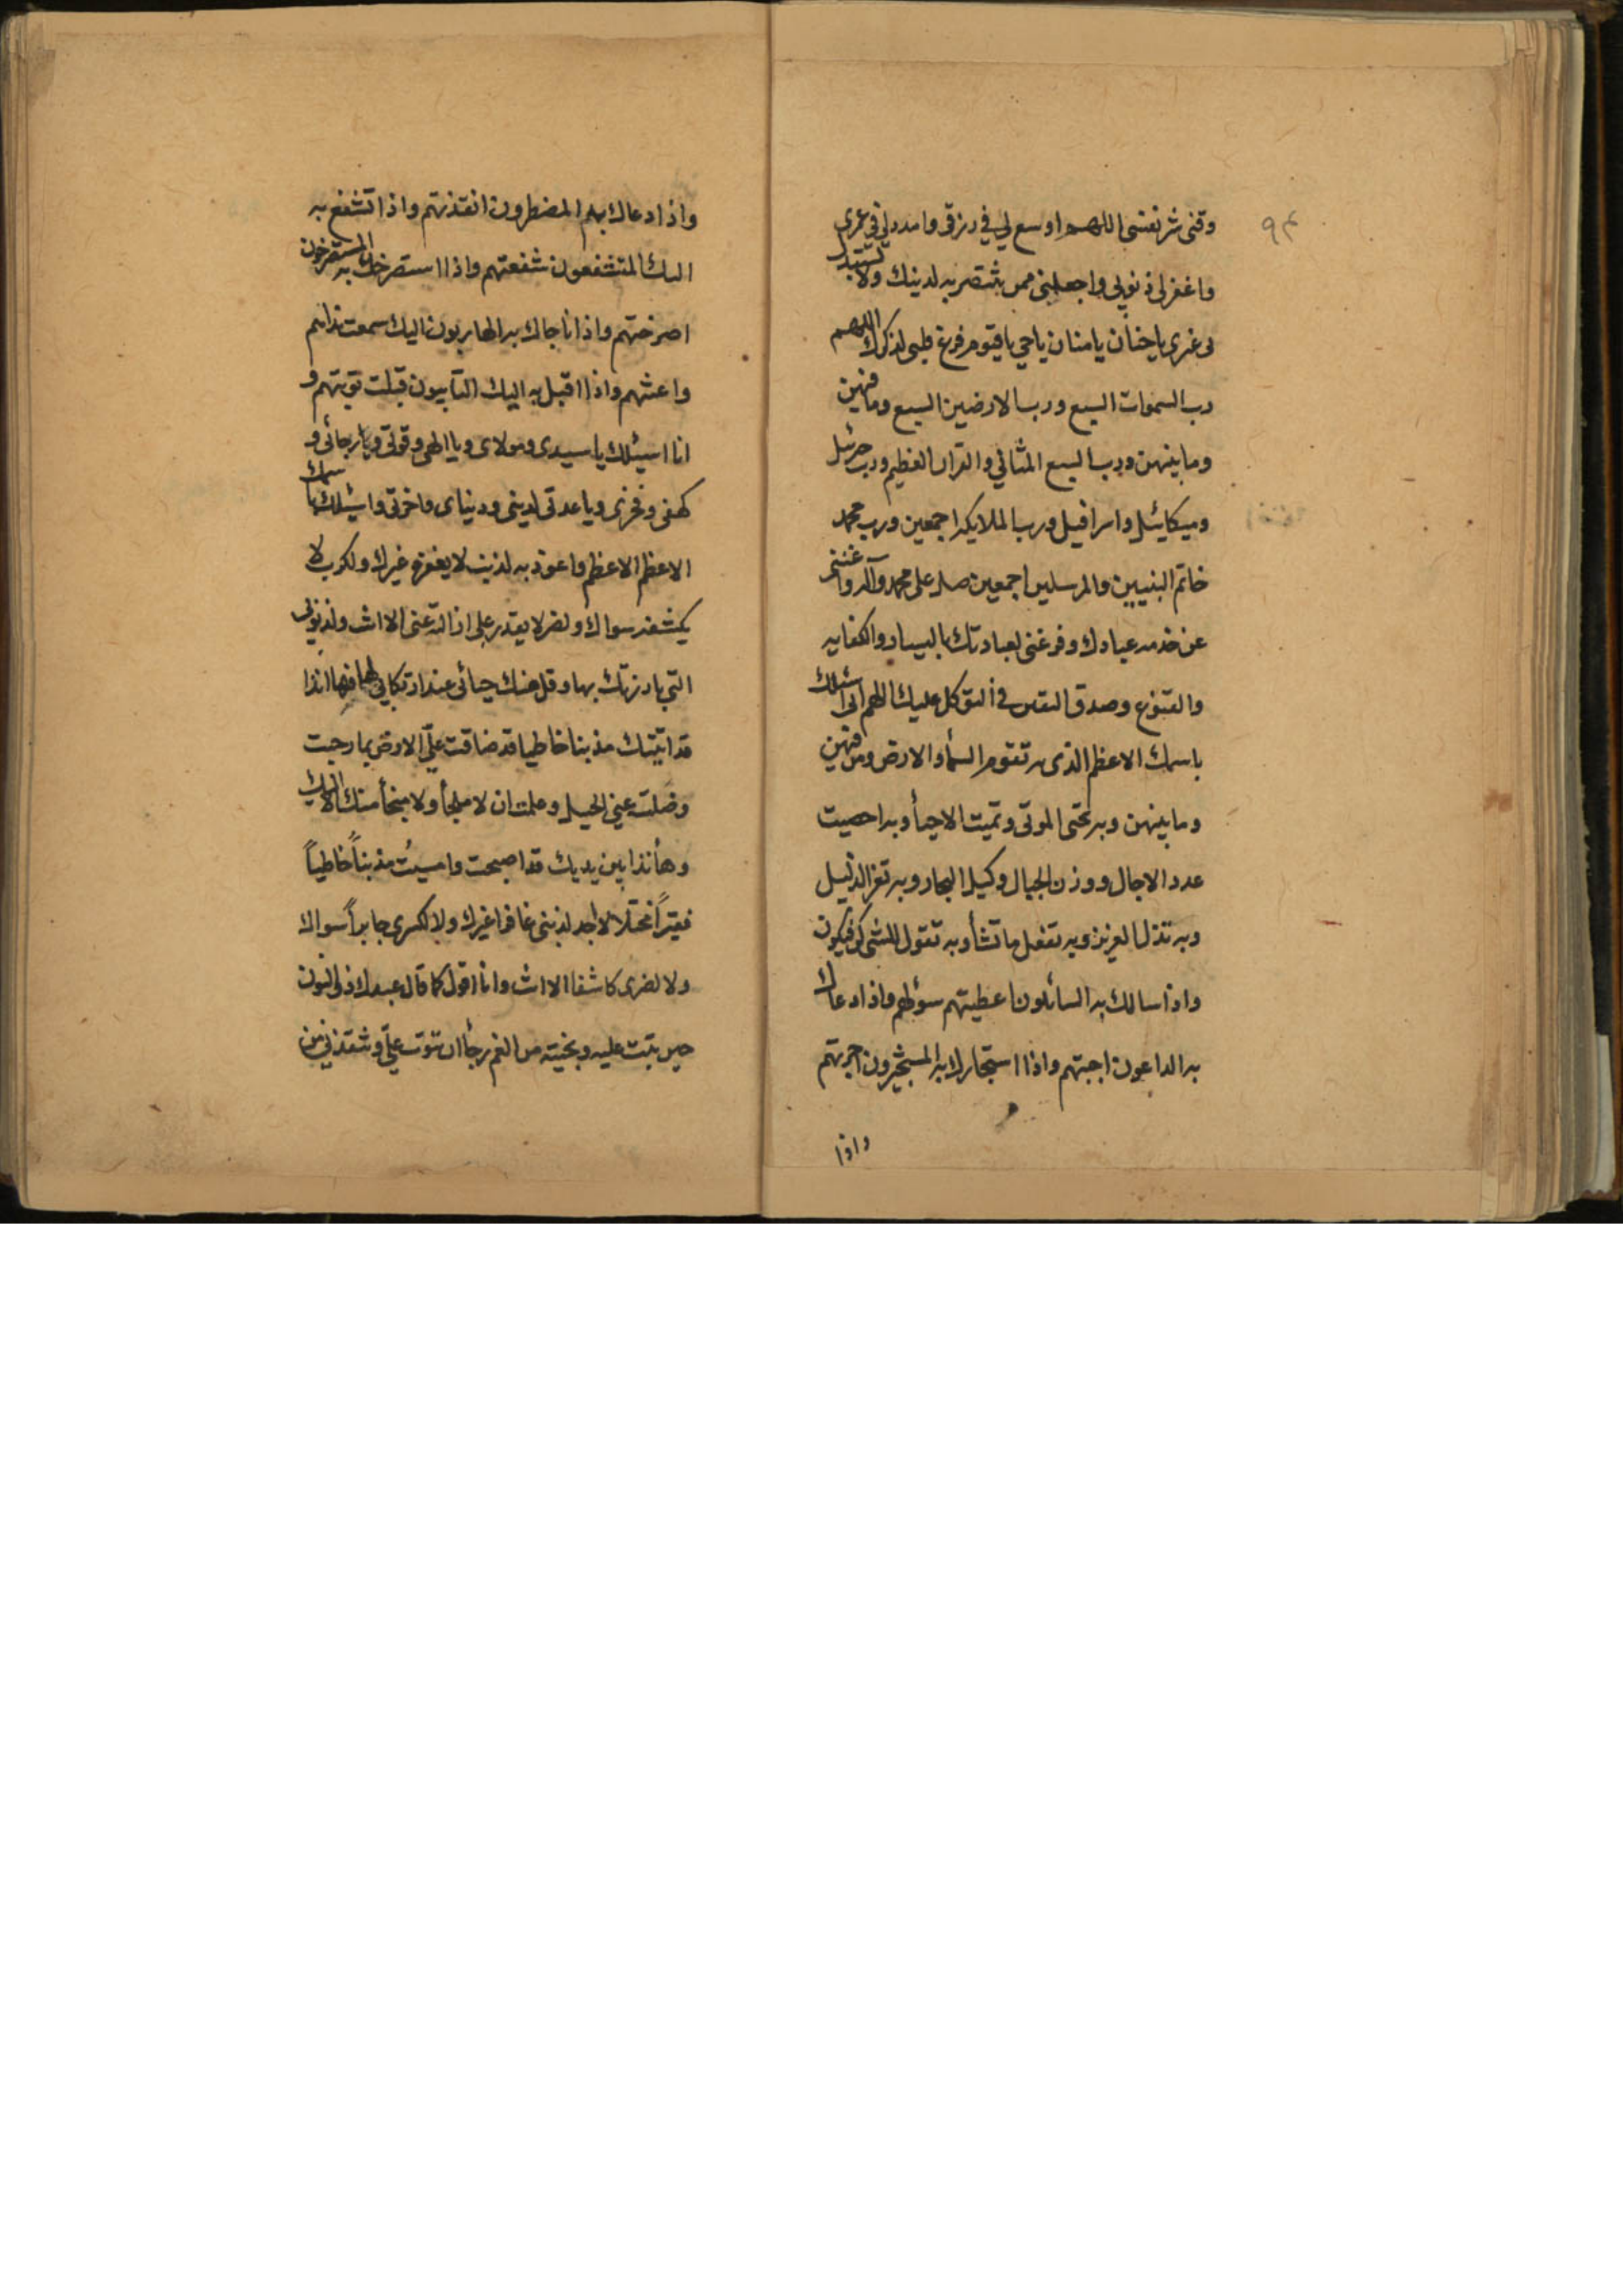 ٩٤
وقنى شر نفسى اللهم اوسع لي في رزقى وامدد لي في عمرى
واغفر لى ذنوبي واجعلنى ممن تنتصر به لدينك ولا تستبدل
بى غيرى يا حنان يا منان يا حي يا قيوم فرغ قلبى لذكرك اللهم
رب السموات السبع ورب الارضين السبع وما فيهن
وما بينهن ورب السبع المثاني والقران العظيم ورب جبرئيل
وميكائيل واسرافيل ورب الملايكه اجمعين ورب محمد
خاتم النبيين والمرسلين اجمعين صل على محمد وآله واغننى
عن خدمه عبادك وفرغنى لعبادتك باليسار والكفايه
والقنوع وصدق اليقين في التوكل عليك اللهم انى اسئلك
باسمك الاعظم الذى به تقوم السمأ والارض ومن فيهن
وما بينهن وبه تحيى الموتى وتميت الاحيأ وبه احصيت
عدد الاجال ووزن الجبال وكيل البحار وبه تعز الذليل
وبه تذل العزيز وبه تفعل ما تشأ وبه تقول للشى كن فيكون
واذا سالك به السائلون اعطيتهم سؤلهم واذا دعاك
به الداعون اجبتهم واذا استجارك به المستجيرون اجرتهم
واذا
واذا دعاك به المضطرون انقذتهم واذا تشفع به
اليك المتشفعون شفعتهم واذا استصرخك به المستصرخون
اصرختهم واذا ناجاك به الهاربون اليك سمعت نداهم
واعنتهم واذا اقبل به اليك التايبون قبلت توبتهم و
انا اسئلك يا سيدى ومولاى ويا الهى وقوتى ويا رجائى و
كهفى وفخرى ويا عدتى لدينى ودنياى واخرتى واسئلك باسمك
الاعظم الاعظم واعوذ به لذنب لا يغفره غيرك ولكرب لا
يكشفه سواك ولضر لا يقدر على ازالته عنى الا انت ولذنوبى
التي بارزتك بها وقل منك حيائى عند ارتكابي لها فها انذا
قد اتيتك مذنبا خاطيا قد ضاقت علىّ الارض بما رحبت
وضلت عنى الحيل وعلمت ان لا ملجأ ولا منجأ منك الا اليك
وهأنذا بين يديك قد اصبحت وامسيت مذنباً خاطياً
فقيراً مختلا لا اجد لذنبى غافرا غيرك ولا لكسرى جابراً سواك
ولا لضرى كاشفا الا انت وانا اقول كما قال عبدك ذو النون
حين تبت عليه ونجيته من الغم رجأ ان تتوب علىّ وتنقذنى من